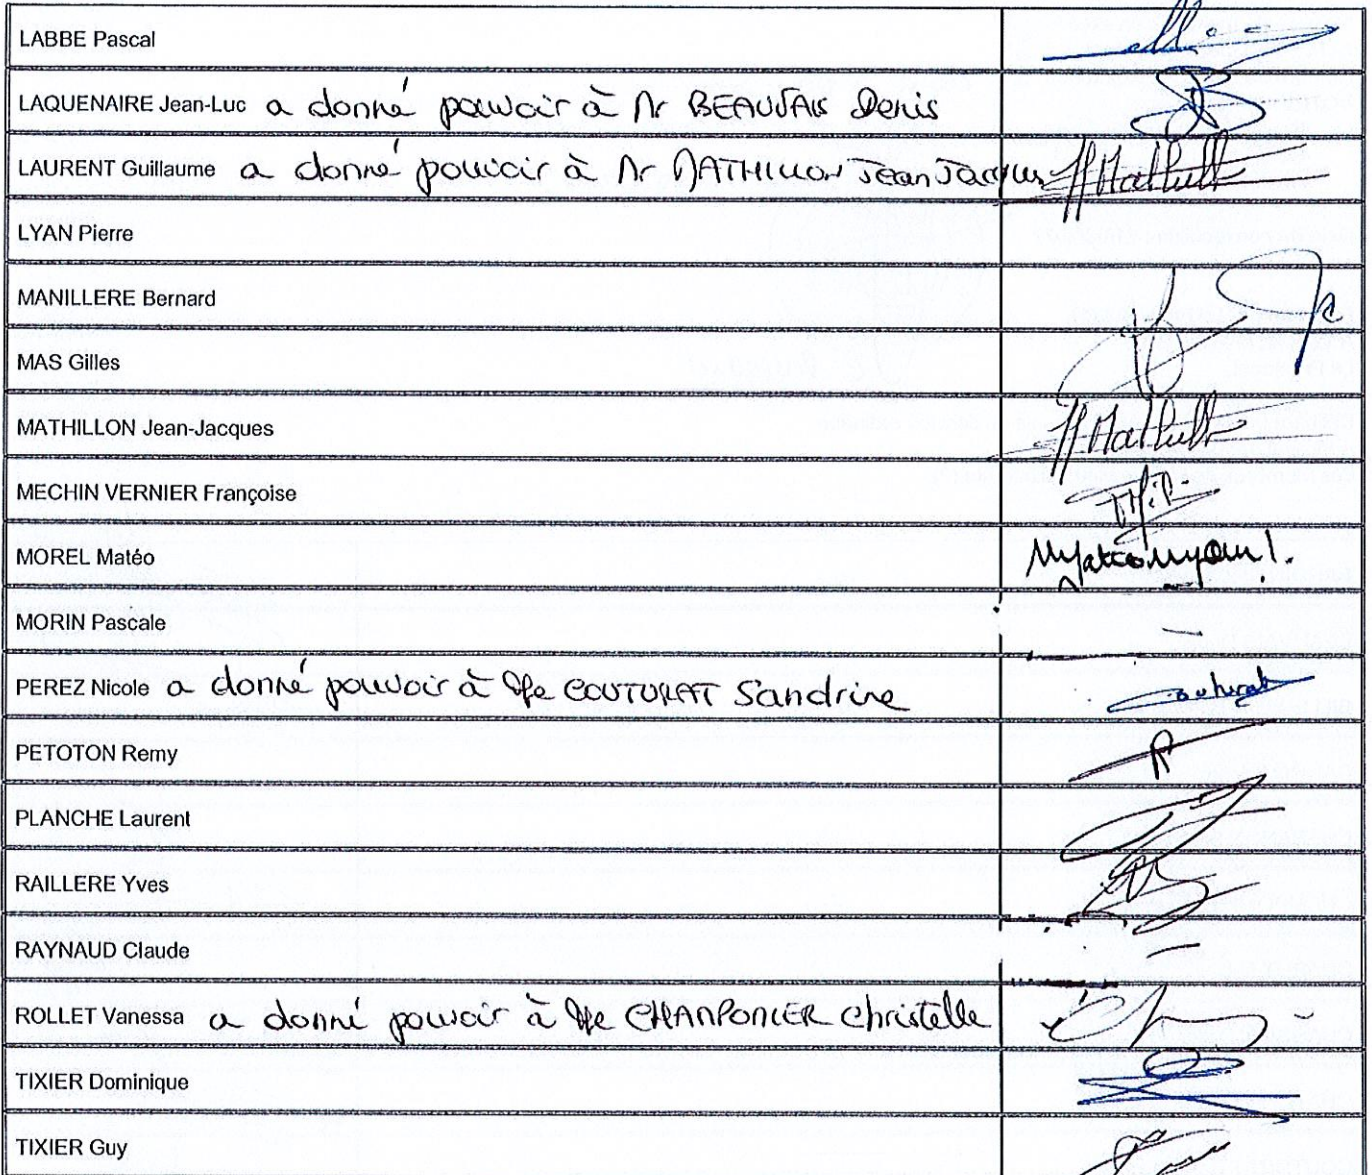 LABBE Pascal
LAQUENAIRE Jean-Luc a donné pouvoir à Mr BEAUVAIS Denis
LAURENT Guillaume a donné pouvoir à Mr MATHILLON Jean Jacques
LYAN Pierre
MANILLERE Bernard
MAS Gilles
MATHILLON Jean-Jacques
MECHIN VERNIER Françoise
MOREL Matéo
MORIN Pascale
PEREZ Nicole a donné pouvoir à Me COUTURAT Sandrine
PETOTON Remy
PLANCHE Laurent
RAILLERE Yves
RAYNAUD Claude
ROLLET Vanessa a donné pouvoir à Me CHAMPOMIER Christelle
TIXIER Dominique
TIXIER Guy